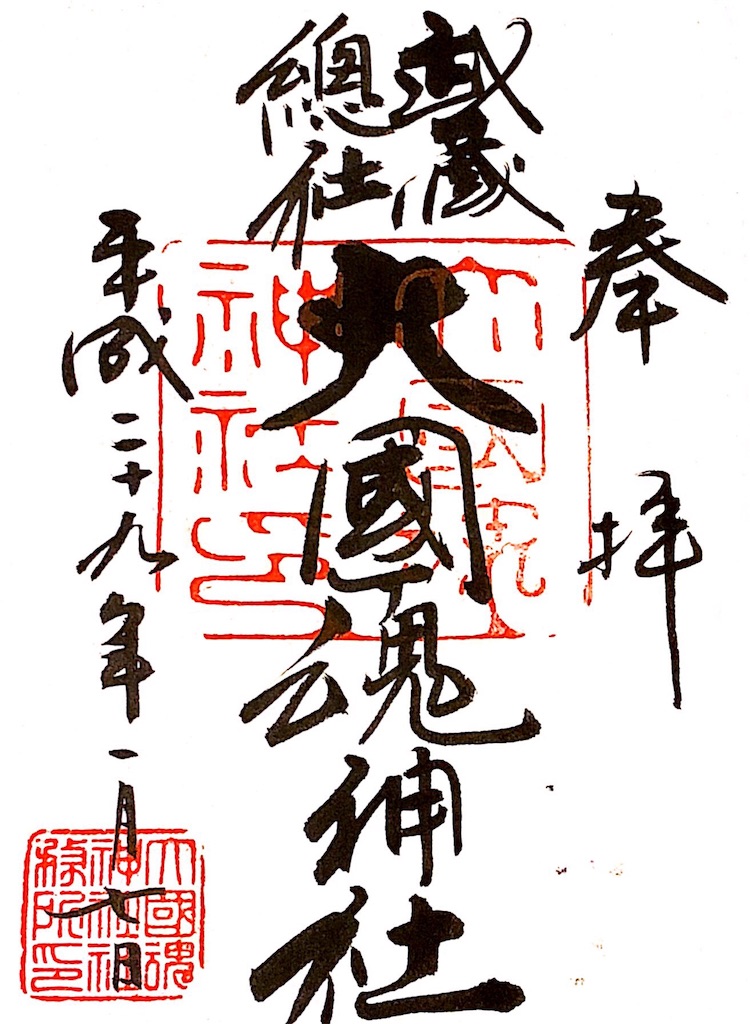 奉拝
武蔵
總社
大國魂神社
平成二十九年一月七日
大國魂
神社印
大國魂
神社社
務所印